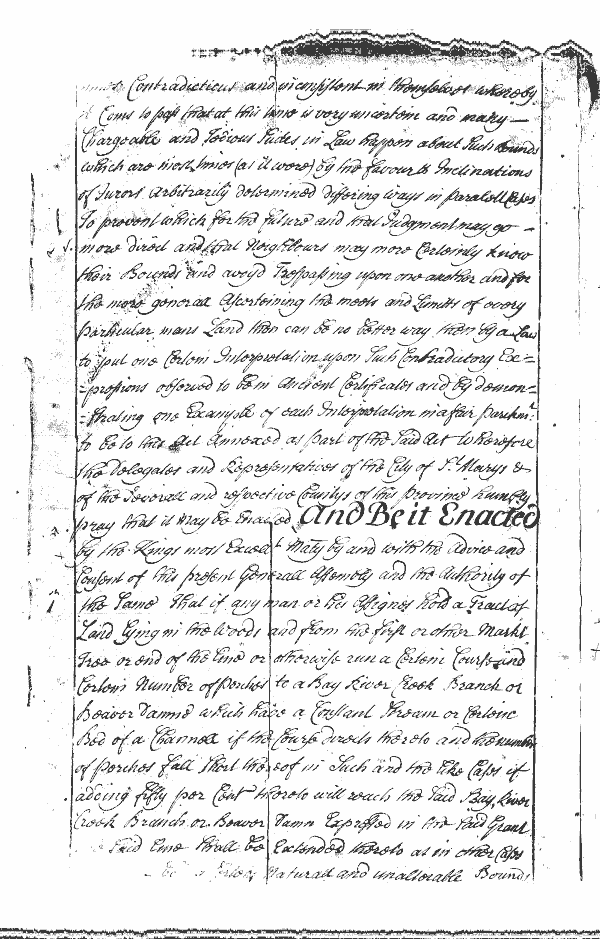 Contradictious and inconsistent in themselves whereby
it Coms to pass that at this time is very uncertein and many
Chargeable and Tedious Suites in Law happen about Such bounds
which are most times (as it were) by the favour & Inclinations
of Jurors arbitrarily determined differing ways in paralell Cases
To prevent which for the future and that Judgment may go
more direct and that Neighbours may more Certeinly know
their Bounds and avoyd Trespassing upon one another and for
the more generall Ascerteining the meets and Limits of every
particular mans Land then can be no better way then by a Law
to put one Certein Interpretation upon Such Contradictory Ex=
=pressions observed to be in Ancient Certificates and by demon=
=strating one Example of each Interpretation in a fair parchmt
to be to this Act Annexed as part of the Said Act Wherefore
the Delegates and Representatives of the City of St Marys &
of the Severall and respective Countys of this Province humbly
pray that it may be Enacted And Be it Enacted
by the Kings most Excellt Maty by and with the Advice and
Consent of this present Generall Assembly and the Authority of
the Same That if any man or his Assignes hold a Tract of
Land lying in the Woods and from the first or other Markt
Tree or end of the Line or otherwise run a Certein Course and
Certein Number of perches to a Bay River Creek Branch or
Beaver Damm which have a Constant Stream or Certein
Bed of a Channell if the Course directs thereto and the number
of perches fall Short thereof in Such and the like Case if
adding fifty per Cent thereto will reach the Said Bay River
Creek Branch or Beaver Damn Expressed in the Said Grant
Said Line Shall be Extended thereto as in other Cases
Certein Naturall and unalterable Bounds